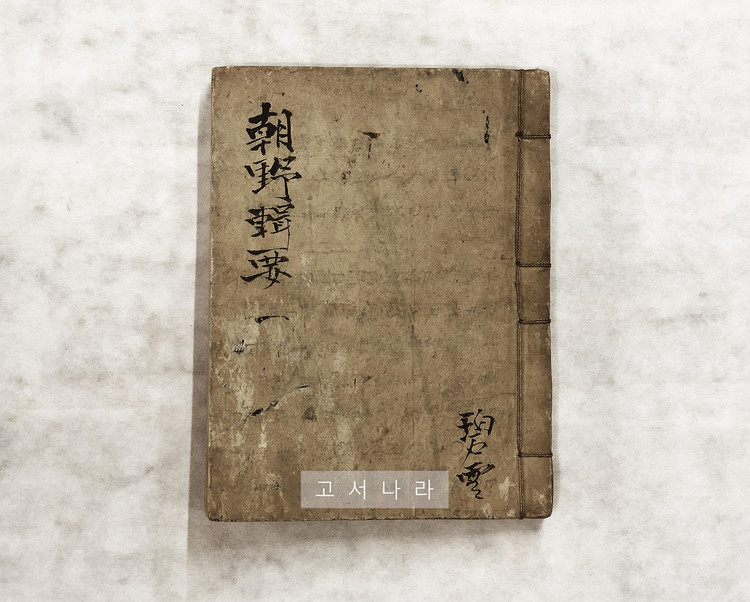 朝野輯要
一
碧雲
고서나라